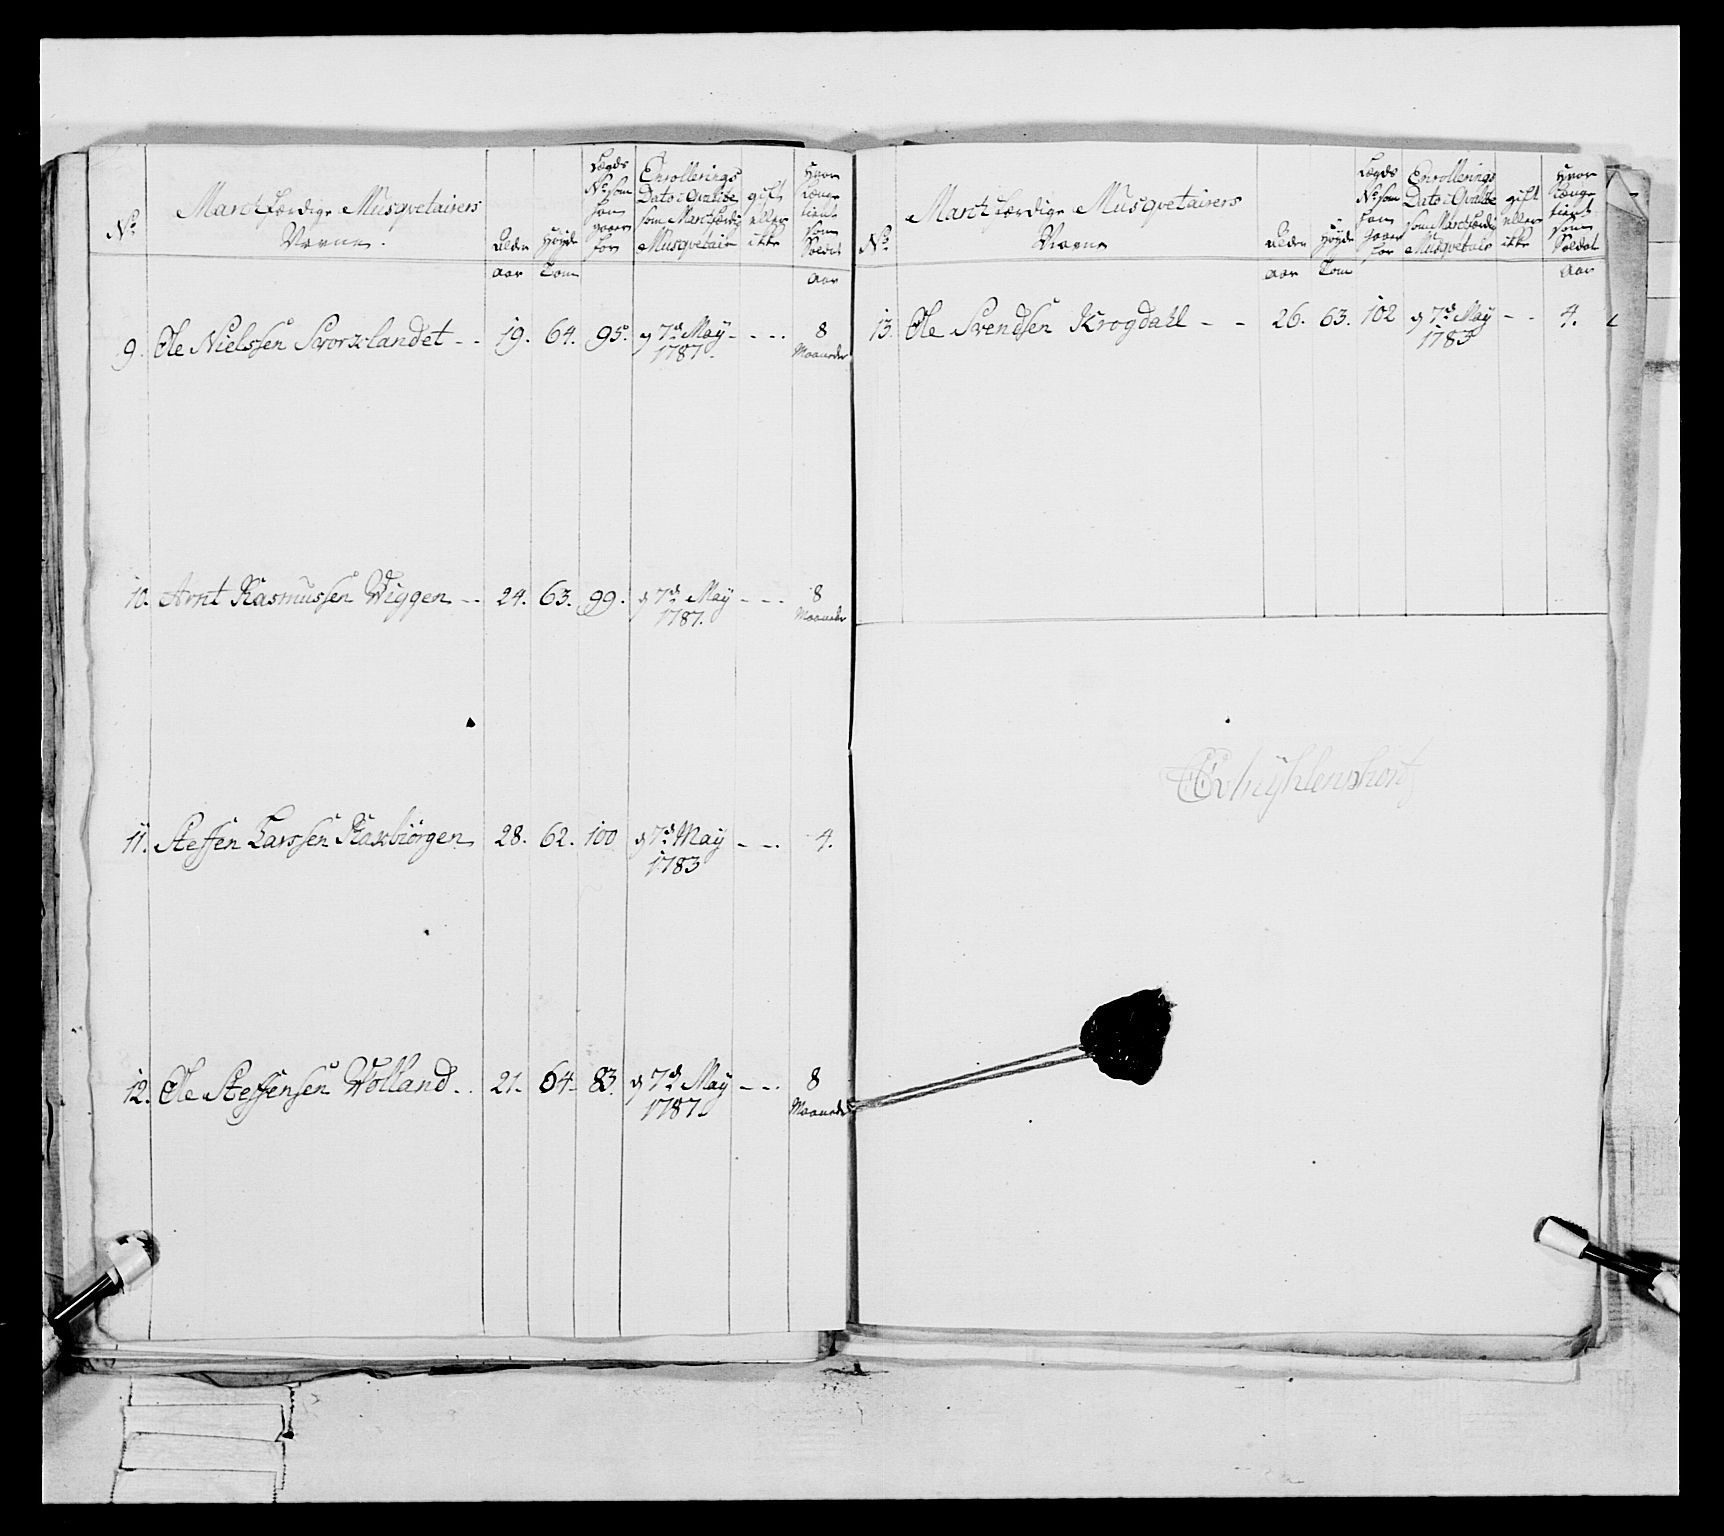 No
Marchfærdige Musqvetairers
Navne.
Alder
Høyde
Lægds
No som
han
gaaer
for
Enrollerings
Dato i Qvalitæ
som Marchfærdig
Musqvetair
gift
eller
ikke
Hvor
Længe
tient
som
Soldat
Aar
Tom
Aar
9. Ole Nielssen Svorxlandet - - 19. 64. 95. d 7de May - - - 8
1787. Maaneder
10. Arnt Rasmussen Wiggen - - 24. 63. 99. d 7de May - - - 8
1787. Maaneder
11. Steffen Larssen Raxbiørgen 28. 62. 100 d 7de May - - - 4.
1783
12. Ole Steffensen Wolland - - 21. 64. 83. d 7de May - - - 8
1787. Maaneder
No
Marchfærdige Musqvetairers
Navne
Alder
Høyde
Lægds
No som
han
gaaer
for
Enrollerings
Dato i Qvalitæ
som Marchfærdig
Musqvetair
gift
eller
ikke
Hvor
Længe
tient
som
Soldat
Aar
Tom
Aar
13. Ole Svendsen Krogdahl - - 26. 63. 102 d 7de May - - 4.
1783